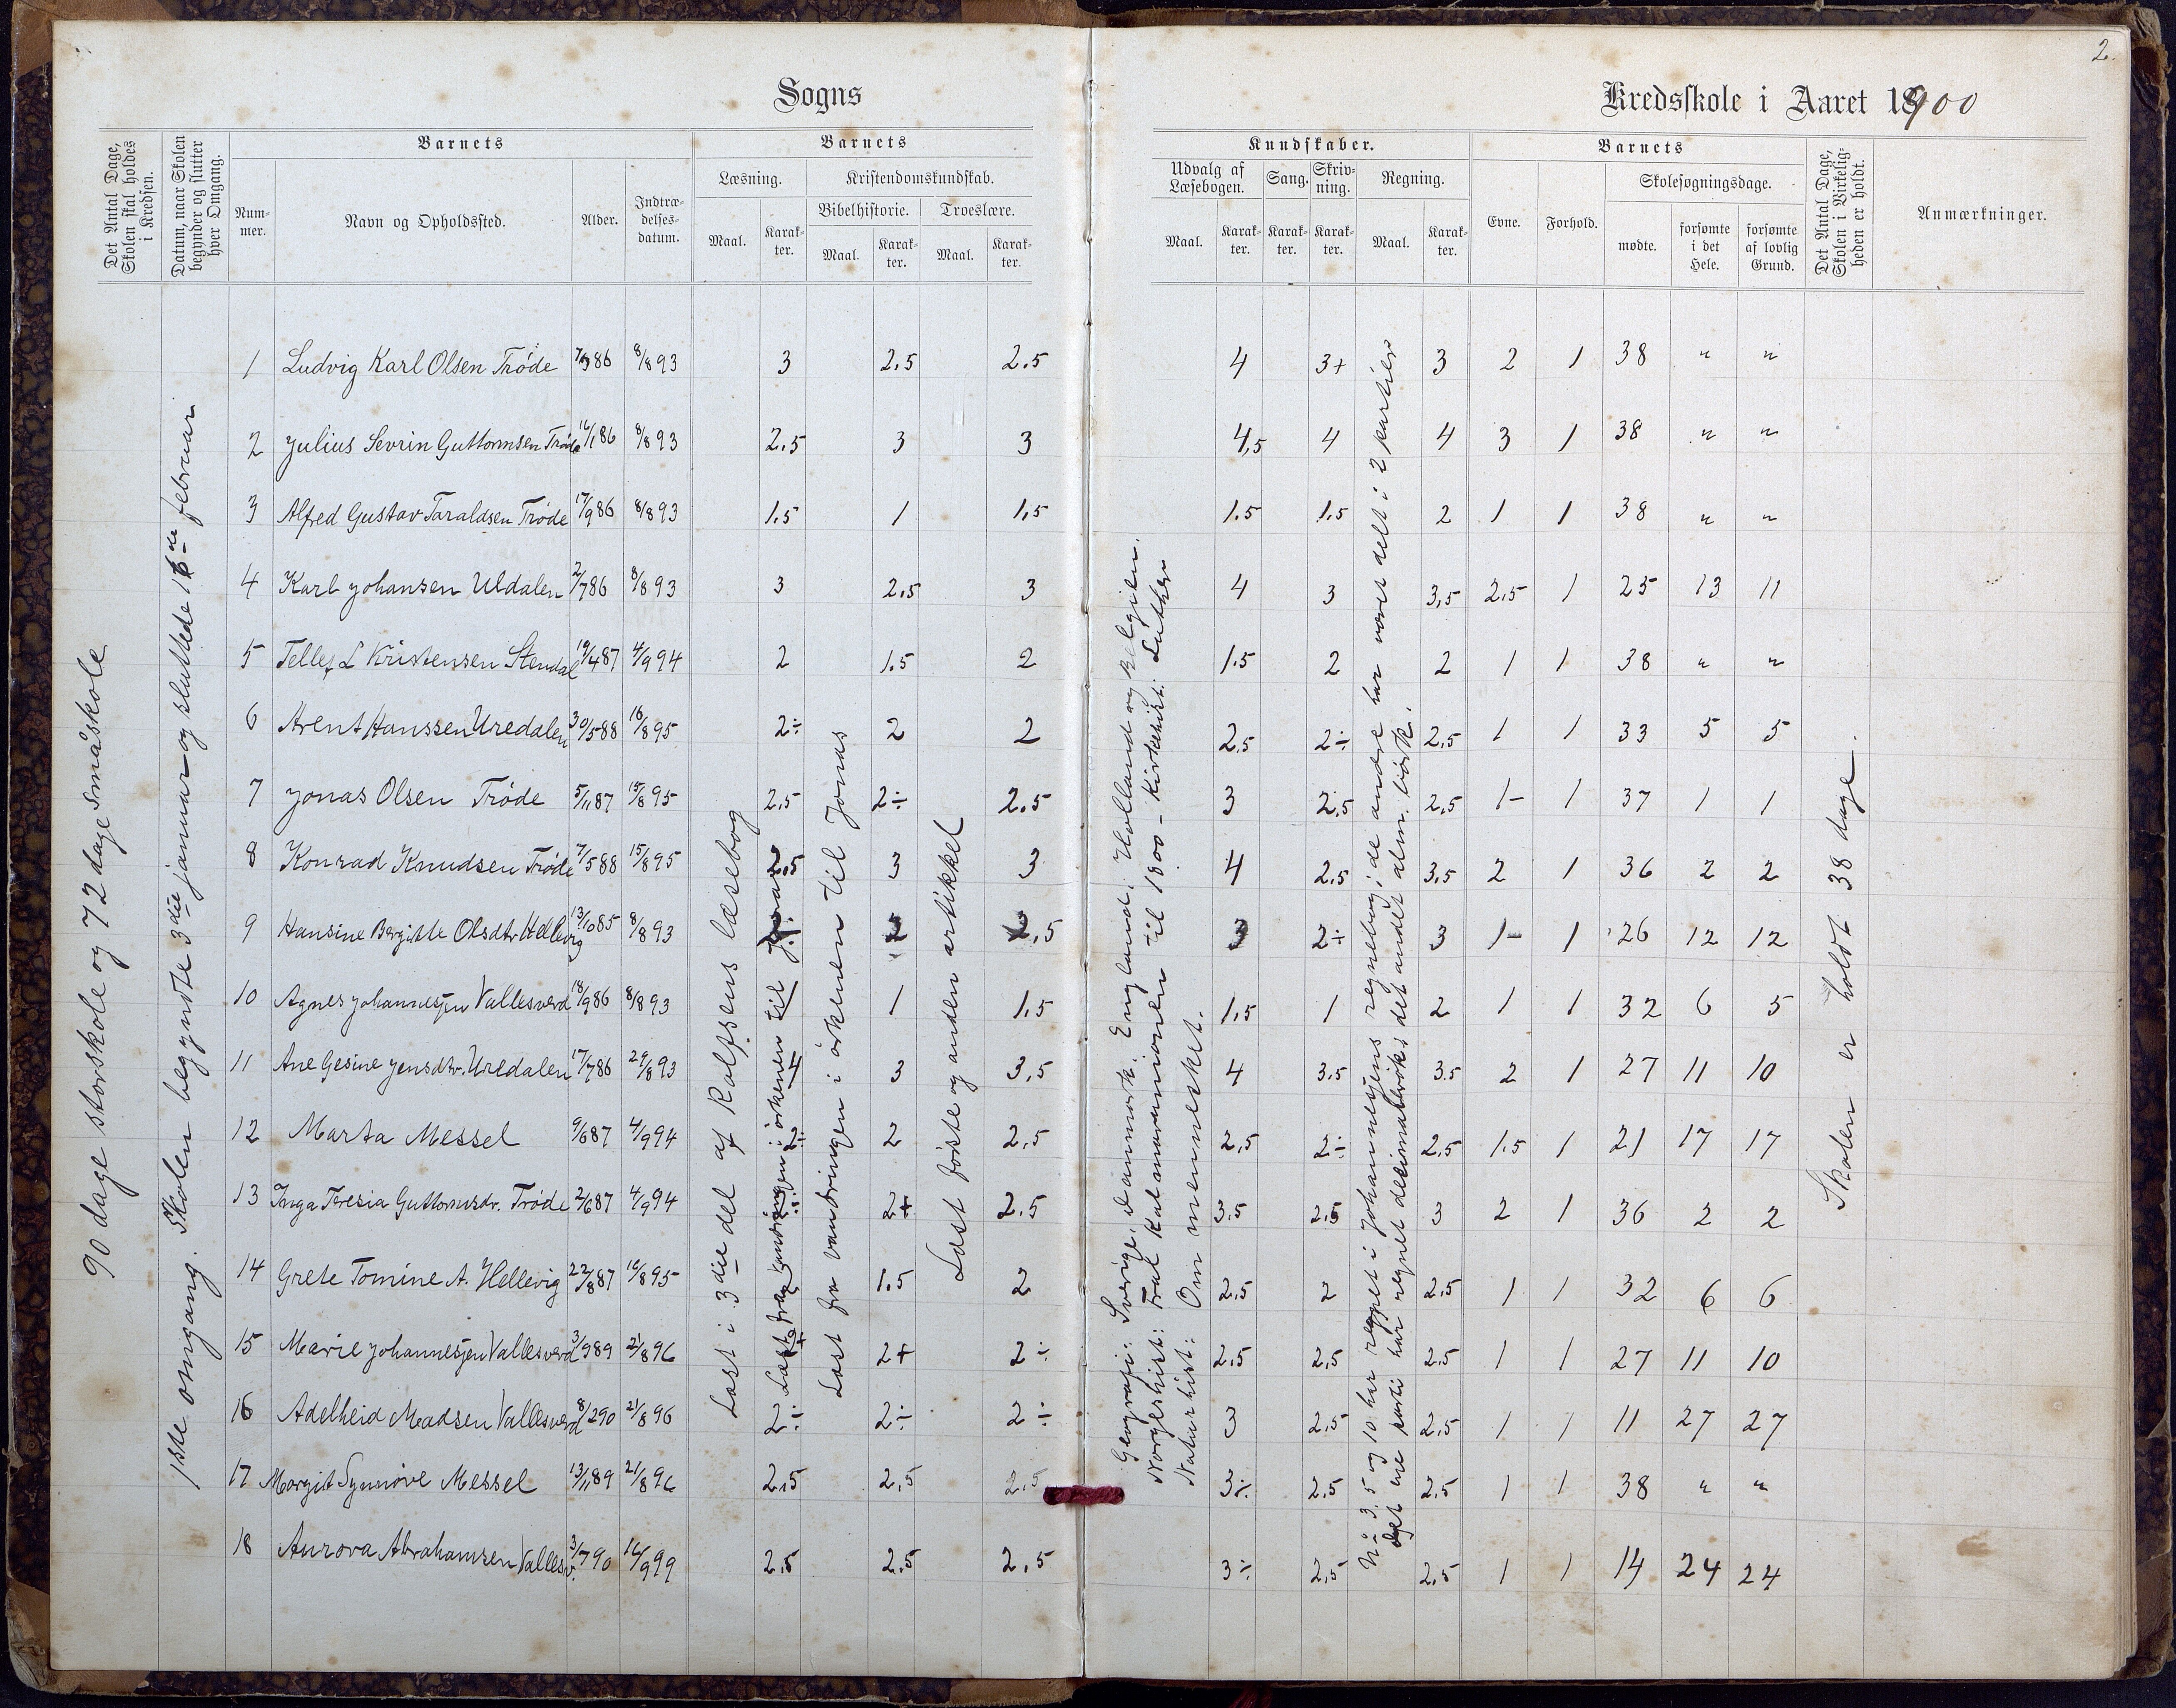 2.
Sogns
Kredsskole i Aaret 1900
Det Antal Dage, Skolen skal holdes i Kredsen.
Datum, naar Skolen begynder og slutter hver Omgang.
Barnets
Barnets
Kundskaber.
Barnets
Det Antal Dage, Skolen i Virkeligheden er holdt.
Anmærkninger.
Nummer.
Navn og Opholdssted.
Alder.
Indtrædelsesdatum.
Læsning.
Kristendomskundskab.
Bibelhistorie.
Troeslære.
Udvalg af Læsebogen.
Sang.
Skrivning.
Regning.
Evne.
Forhold.
Skolesøgningsdage.
Maal. Karakter. Maal. Karakter. Maal. Karakter.
Maal. Karakter. Karakter. Karakter. Maal. Karakter.
mødte. forsømte i det Hele. forsømte af lovlig Grund.
90 dage storskole og 72 dage småskole
1ste omgang. Skolen begyndte 3die januar og sluttede 16de februar
1 Ludvig Karl Olsen Trøde 86 8/8 93 3 2,5 2,5 4 3+ 3 2 1 38 " "
2 Julius Sevrin Guttormsen Trøde 16/1 86 8/8 93 2,5 3 3 4,5 4 4 3 1 38 " "
3 Alfred Gustav Taraldsen Trøde 17/9 86 8/8 93 1,5 1 1,5 1,5 1,5 2 1 1 38 " "
4 Karl Johansen Uldalen 2/7 86 8/8 93 3 2,5 3 4 3 3,5 2,5 1 25 13 11
5 Tellef L Kristensen Stendal 19/4 87 4/9 94 2 1,5 2 1,5 2 2 1 1 38 " "
6 Arent Hanssen Uredalen 30/5 88 16/8 95 2÷ 2 2 2,5 2÷ 2,5 1 1 33 5 5
7 Jonas Olsen Trøde 5/11 87 15/8 95 2,5 2÷ 2,5 3 2,5 2,5 1- 1 37 1 1
8 Konrad Knudsen Trøde 7/5 88 15/8 95 2,5 3 3 4 2,5 3,5 2 1 36 2 2
9 Hansine Bergitte Olsdtr Hellevig 13/10 85 8/8 93 2 2,5 3 2÷ 3 1- 1 26 12 12
10 Agnes Johannesjen Vallesverd 18/9 86 8/8 93 1 1,5 1,5 1 2 1 1 32 6 5
11 Ane Gesine Jensdtr. Uredalen 17/7 86 29/8 93 4 3 3,5 4 3,5 3,5 2 1 27 11 10
12 Marta Messel 9/6 87 4/9 94 2÷ 2 2,5 2,5 2÷ 2,5 1,5 1 21 17 17
13 Inga Teresia Guttormsdr. Trøde 2/6 87 4/9 94 2+ 2,5 3,5 2,5 3 2 1 36 2 2
14 Grete Tomine A. Hellevig 22/8 87 16/8 95 1,5 2 2,5 2 2,5 1 1 32 6 6
15 Marie Johannesjen Vallesverd 3/9 89 21/8 96 2+ 2÷ 2,5 2,5 2,5 1 1 27 11 10
16 Adelheid Madsen Vallesverd 8/2 90 21/8 96 2÷ 2÷ 2÷ 3 2,5 2,5 1 1 11 27 27
17 Margit Synnöve Messel 13/11 89 21/8 96 2,5 2,5 2,5 3÷ 2,5 2,5 1 1 38 " "
18 Aurora Abrahamsen Vallesv. 3/7 90 16/9 99 2,5 2,5 2,5 3÷ 2,5 2,5 1 1 14 24 24
Læst i 3die del af Rolfsens læsebog
Læst fra vandringen i ørkenen til Jonas
Læst fra vandringen i ørkenen til Jonas
Læst første og anden artikkel
Geografi: Sverige, Danmark, England, Holland og Belgien.
Norgeshist: Fra Kalmarunionen til 1800 - Kirkehist: Luther
Naturhist: Om mennesket.
No 3, 5 og 10 har regnet i Johannesjens regnebog; de andre har været delt i 2 partier
Det ene parti har regnet decimalbrøk, det andet alm. brøk.
Skolen er holdt 38 dage.